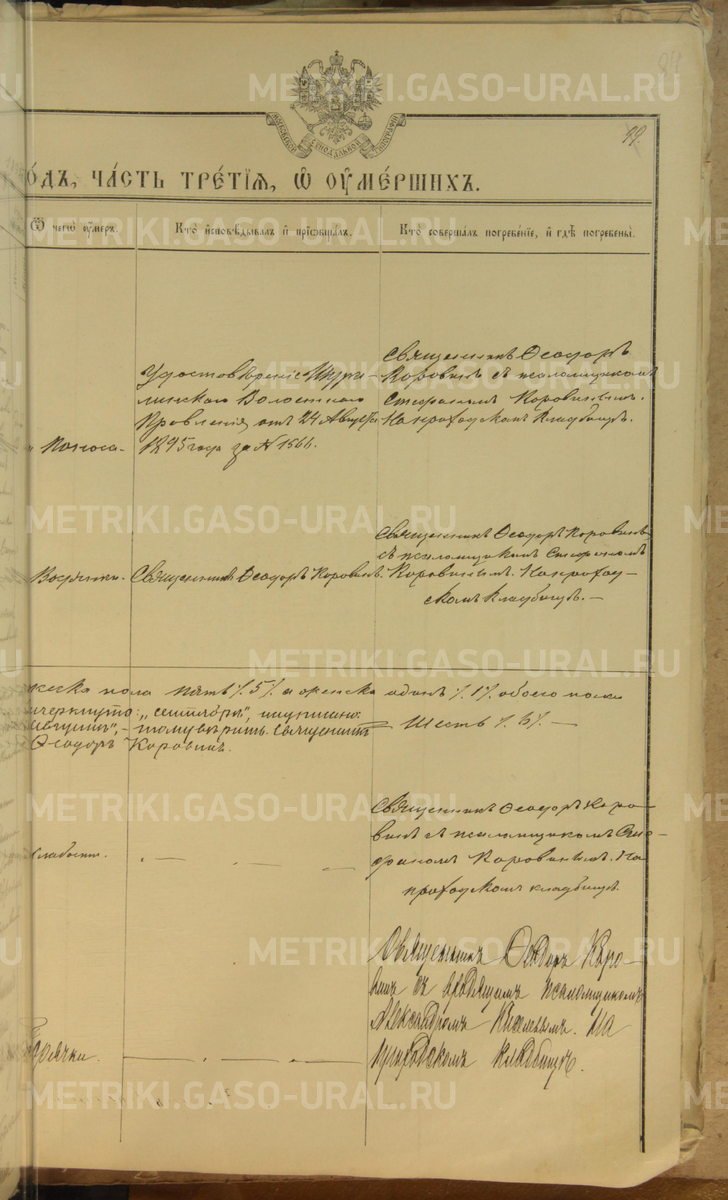 METRIKI.GASO-URAL.RU
99.
МОСКОВСКОЙ СѴНОДАЛЬНОЙ ТИПОГРАФІИ
о́дъ, ча́сть тре́тїѧ, ѡ҆ оу҆ме́ршихъ.
Ѿ чегѡ̀ оу҆́меръ.
Кто̀ и҆сповѣ́дывалъ и҆ прїѡбща́лъ.
Кто̀ соверша́лъ погребе́нїе, и҆ гдѣ̀ погребены̀.
Поноса.
Удостовѣреніе
линскаго Волостнаго
Правленія отъ 24 Августа
1895 года за № 1566.
Священникъ Ѳеодоръ
Коровинъ съ псаломщикомъ
Стефаномъ Коровинымъ.
На приходскомъ кладбищѣ.
Священникъ Ѳеодоръ Коровинъ.
Священникъ Ѳеодоръ Коровинъ
съ псаломщикомъ Стефаномъ
Коровинымъ. На приход-
скомъ кладбищѣ. —
жеска пола пять /. 5 /. а женска одинъ /. 1 /. обоего пола
Шесть /. 6 /. —
черкнуто: „сентябрь", надписано:
Августъ", – тому вѣрить. Священникъ
Ѳеодоръ Коровинъ.
слабости.
Священникъ Ѳеодоръ Коро-
винъ съ псаломщикомъ Сте-
фаномъ Коровинымъ. На
приходскомъ кладбищѣ.
Священникъ Ѳеодоръ Коро-
винъ съ псаломщикомъ
Александромъ На
приходскомъ кладбищѣ.